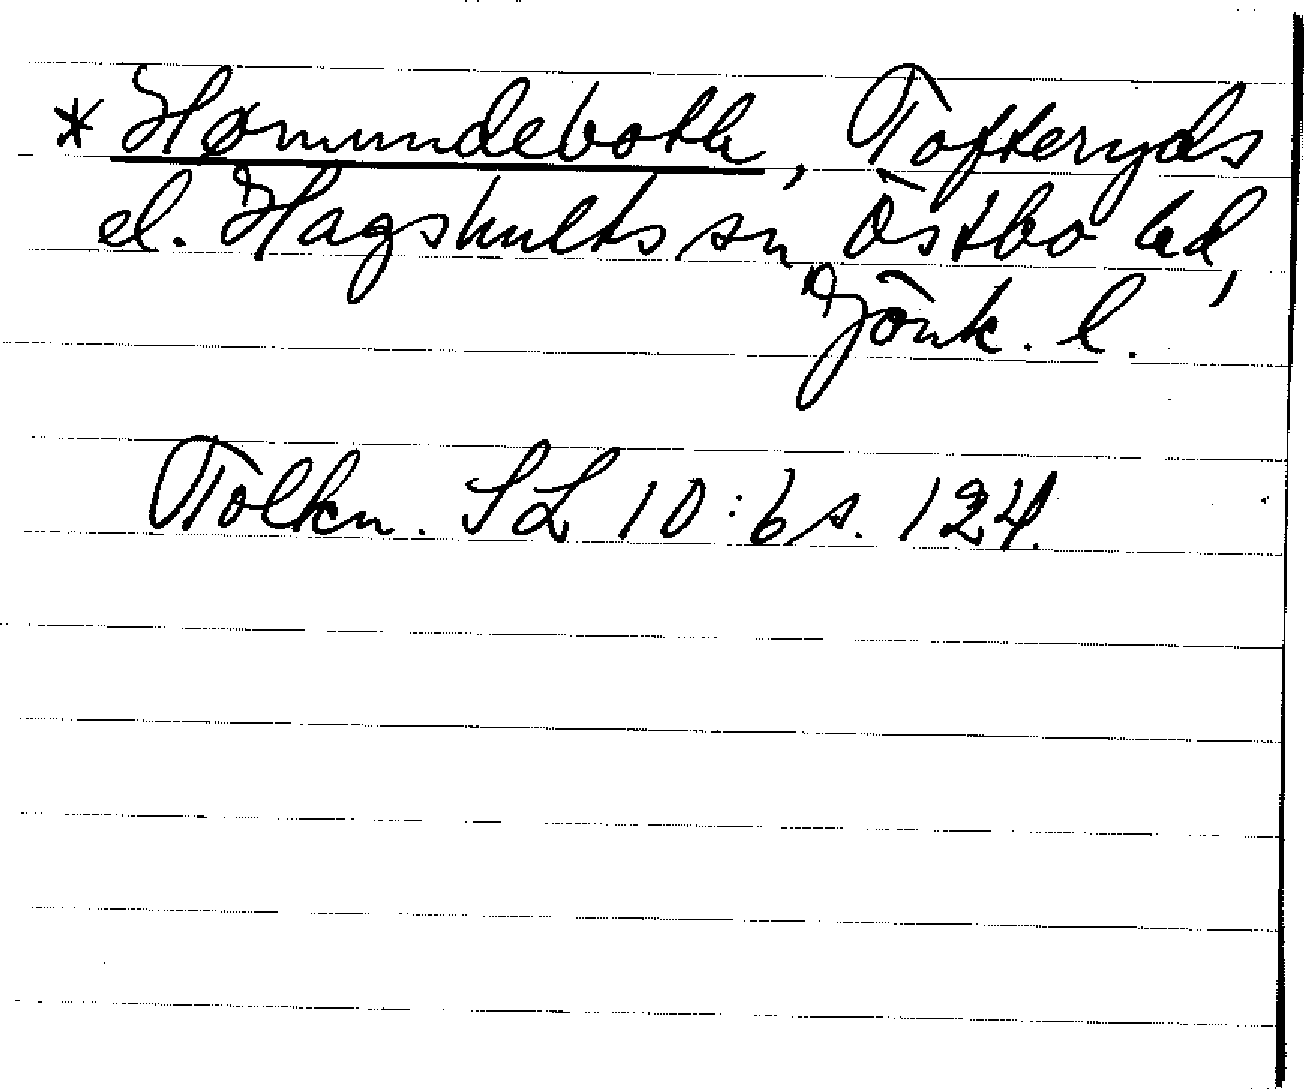 * Hømundeboth, Tofteryds
el. Hagshults sn, Östbo hd,
Jönk. l.
Tolkn. SL 10:6 s. 124.